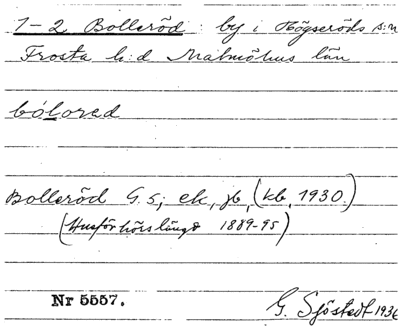 1-2 Bolleröd: by i Högseröds s:n
Frosta h:d Malmöhus län
bólorad
Bolleröd G.s; ek, jb, (kb, 1930.)
(Husförhörslängd 1889-95)
Nr 5557.
G. Sjöstedt 1936